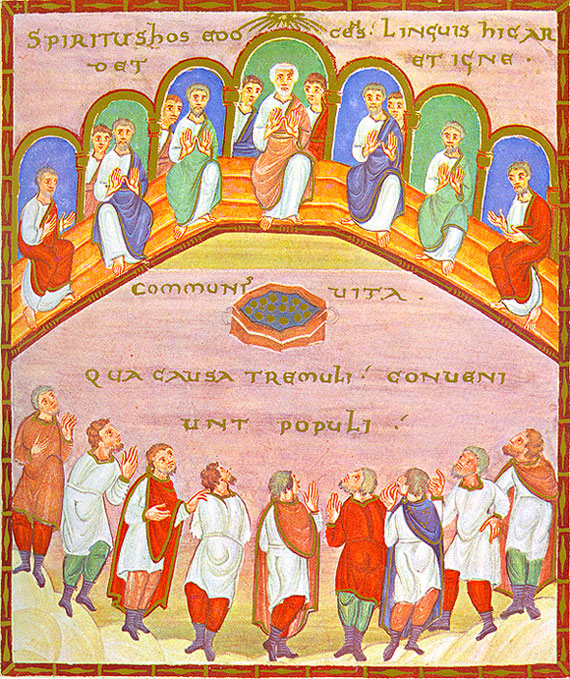 SPIRITUS hOS EDO CēS. LINGUIS hIC AR
DET ET IGNE .
COMMUNⁱ UITA .
QUA CAUSA TREMULI . CONUENI
UNT POPULI .